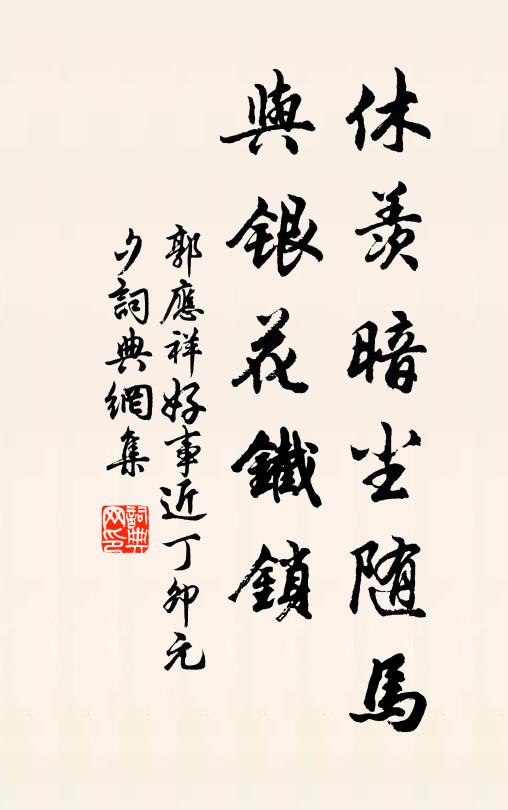 休羡暗尘随馬
與銀花鐵鎖
郭應祥好事近丁卯元
夕詞典網集
詞典
网印